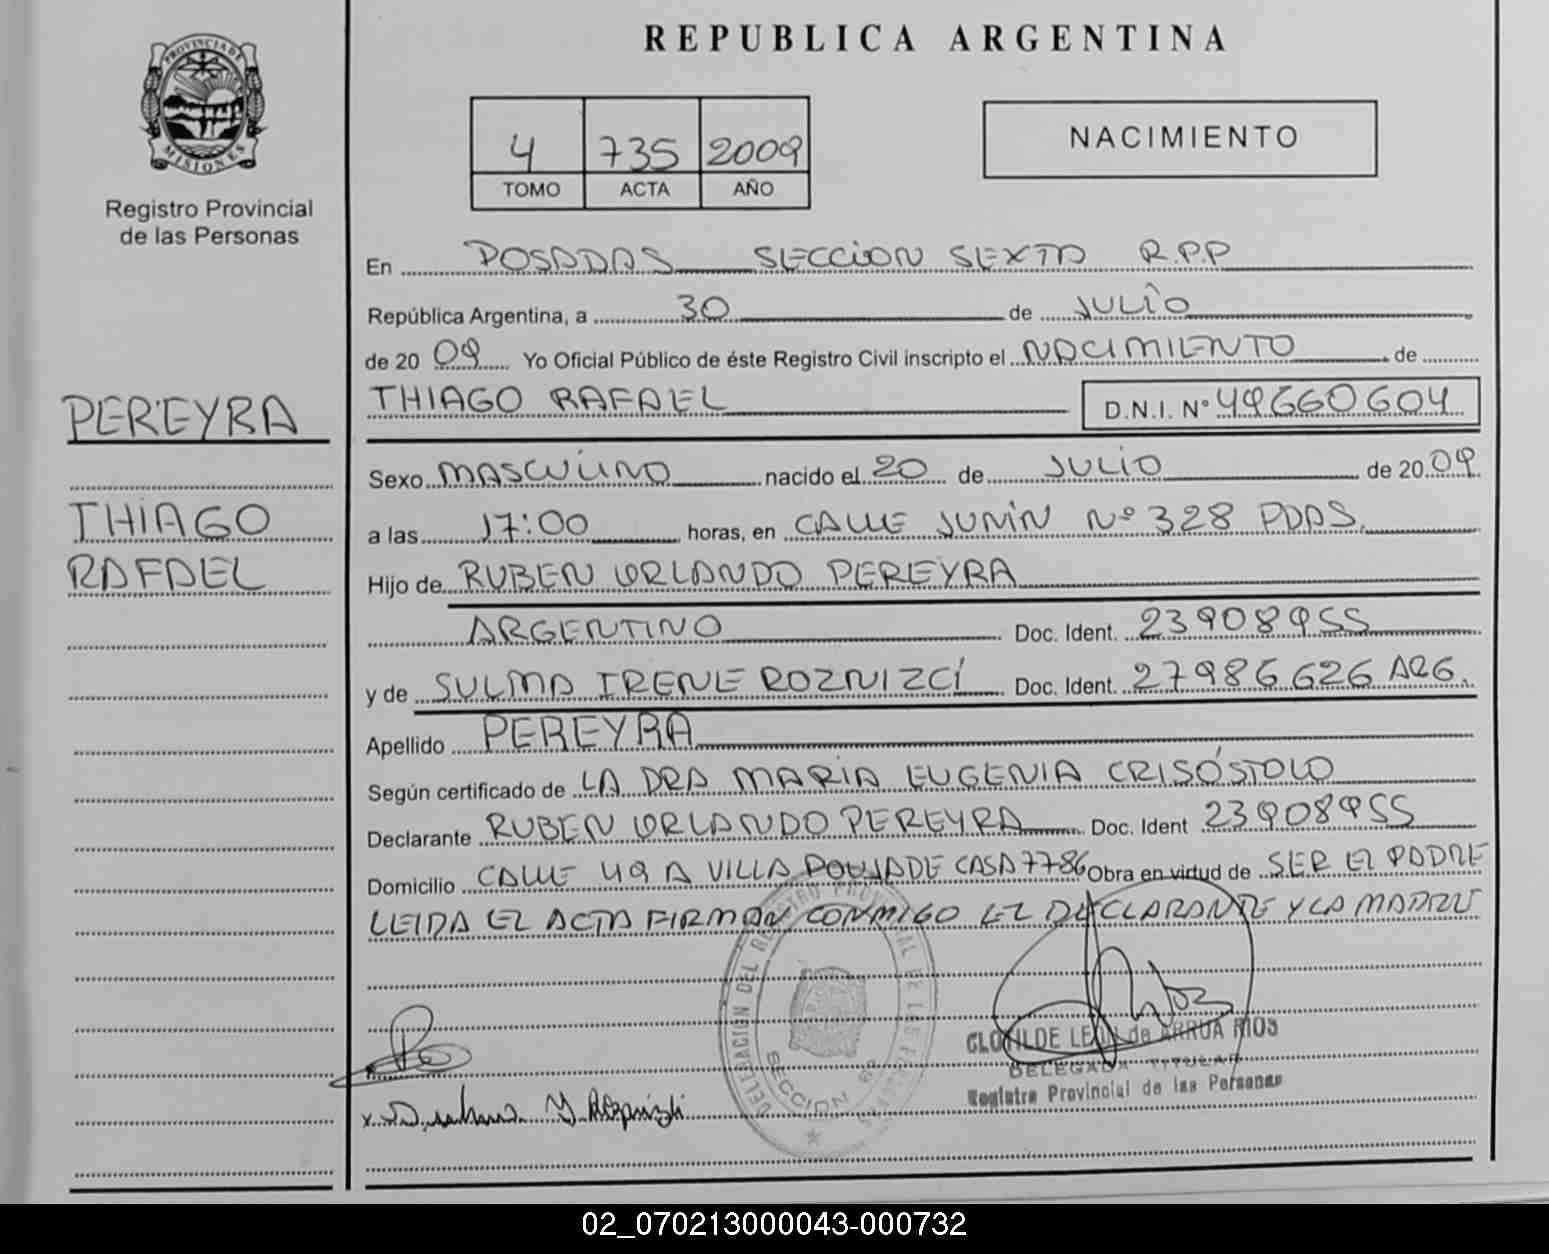 REPUBLICA ARGENTINA
PROVINCIA DE
MISIONES
Registro Provincial
de las Personas
4 735 2009
TOMO ACTA AÑO
NACIMIENTO
En POSADAS SECCION SEXTA R.P.P
República Argentina, a 30 de JULIO
de 2009 Yo Oficial Público de éste Registro Civil inscripto el NACIMIENTO de
PEREYRA
THIAGO RAFAEL D.N.I. N° 49660604
Sexo MASCULINO nacido el 20 de JULIO de 2009
THIAGO
a las 17:00 horas, en CALLE JUNIN Nº 328 PDAS.
RAFAEL
Hijo de RUBEN ORLANDO PEREYRA
ARGENTINO Doc. Ident. 23908955
y de SULMA IRENE ROZNIZCI Doc. Ident. 27986626 ARG.
Apellido PEREYRA
Según certificado de LA DRA MARIA EUGENIA CRISÓSTOLO
Declarante RUBEN ORLANDO PEREYRA Doc. Ident 23908955
Domicilio CALLE 49 A VILLA POUJADE CASA 7786 Obra en virtud de SER EL PADRE
LEIDA EL ACTA FIRMAN CONMIGO EL DECLARANTE Y LA MADRE
DELEGACION DEL REGISTRO PROVINCIAL DE LAS PERSONAS
SECCION 6ª
CLOTILDE LEON de ARRUA RIOS
DELEGADA TITULAR
Registro Provincial de las Personas
02_070213000043-000732